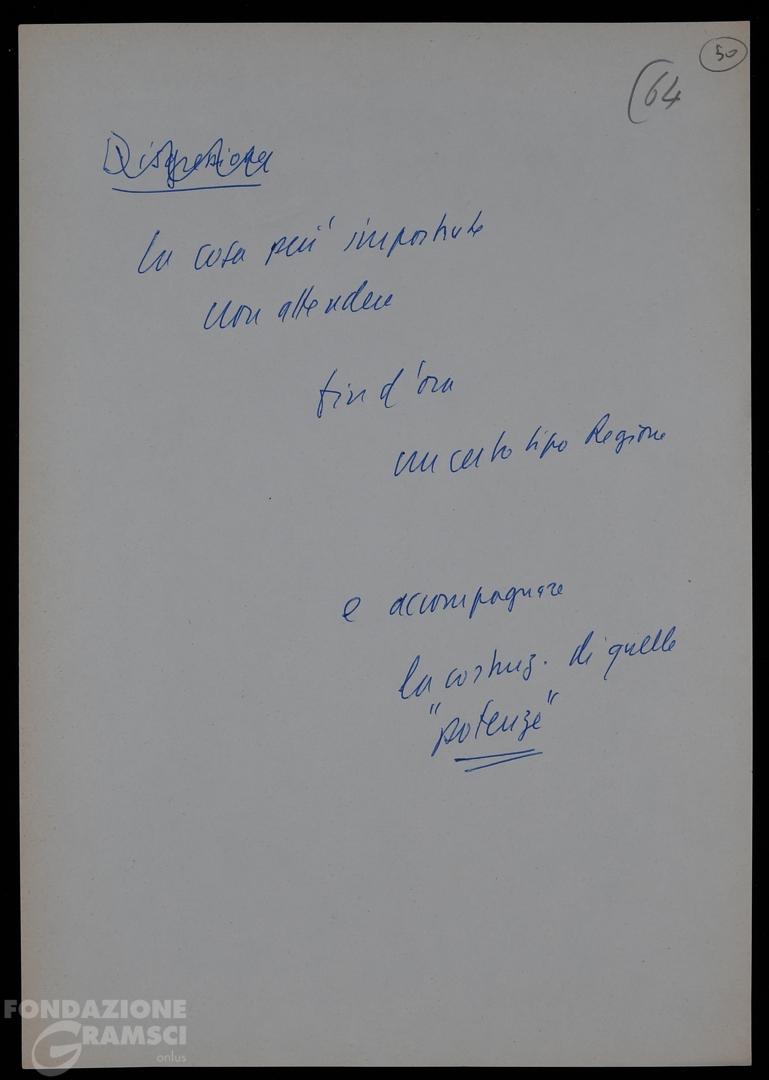 50
(64
Digressione
la cosa più importante
non attendere
fin d'ora
un certo tipo Regione
e accompagnare
la costruz. di quelle
"potenze"
FONDAZIONE
GRAMSCI
onlus